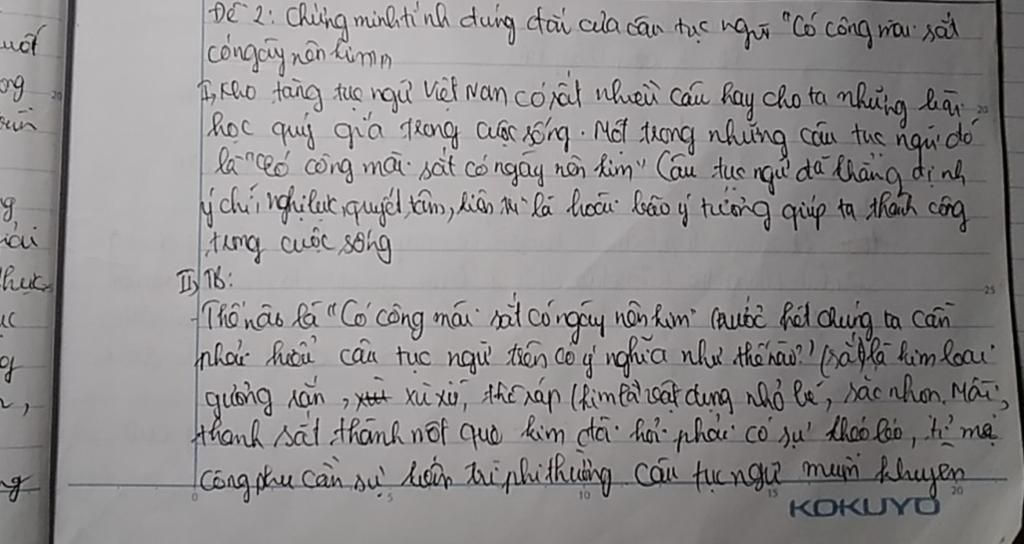 Đề 2: Chứng minh tính đúng đắn của câu tục ngữ "Có công mài sắt
có ngày nên kim"
I, Kho tàng tục ngữ Việt Nam có rất nhiều câu hay cho ta những bài
học quý giá trong cuộc sống. Một trong những câu tục ngữ đó
là "Có công mài sắt có ngày nên kim" Câu tục ngữ đã khẳng định
ý chí, nghị lực, quyết tâm, kiên trì là hoài bão ý tưởng giúp ta thành công
trong cuộc sống
II, TB:
-Thế nào là "Có công mài sắt có ngày nên kim" trước hết chúng ta cần
phải hiểu câu tục ngữ trên có ý nghĩa như thế nào? (sắt) là kim loại
cứng rắn, xù xì, thô ráp (kim là vật dụng nhỏ bé, sắc nhọn. Mài
thanh sắt thành một que kim đòi hỏi phải có sự khéo léo, tỉ mỉ
công phu cần sự kiên trì phi thường Câu tục ngữ muốn khuyên
KOKUYO